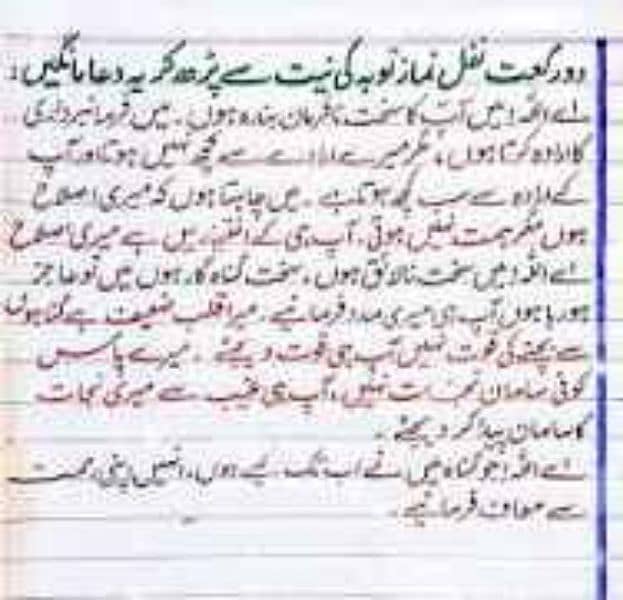 دو رکعت نفل نماز توبہ کی نیت سے پڑھ کر یہ دعا مانگیں:
اے اللہ! میں آپ کا سخت نافرمان بندہ ہوں۔ میں فرمانبرداری
کا ارادہ کرتا ہوں، مگر میرے ارادے سے کچھ نہیں ہوتا اور آپ
کے ارادہ سے سب کچھ ہوتا ہے۔ میں چاہتا ہوں کہ میری اصلاح
ہوں مگر ہمت نہیں ہوتی۔ آپ ہی کے اختیار میں ہے میری اصلاح
اے اللہ! میں سخت نالائق ہوں۔ سخت گناہ گار ہوں میں تو عاجز
ہو رہا ہوں آپ ہی میری مدد فرمائیے۔ میرا قلب ضعیف ہے گناہوں
سے بچنے کی قوت نہیں آپ ہی قوت دیجئے۔ میرے پاس
کوئی سامان نجات نہیں، آپ ہی غیب سے میری نجات
کا سامان پیدا کر دیجئے۔
اے اللہ! جو گناہ میں نے اب تک کیے ہوں، انہیں اپنی رحمت
سے معاف فرمائیے۔